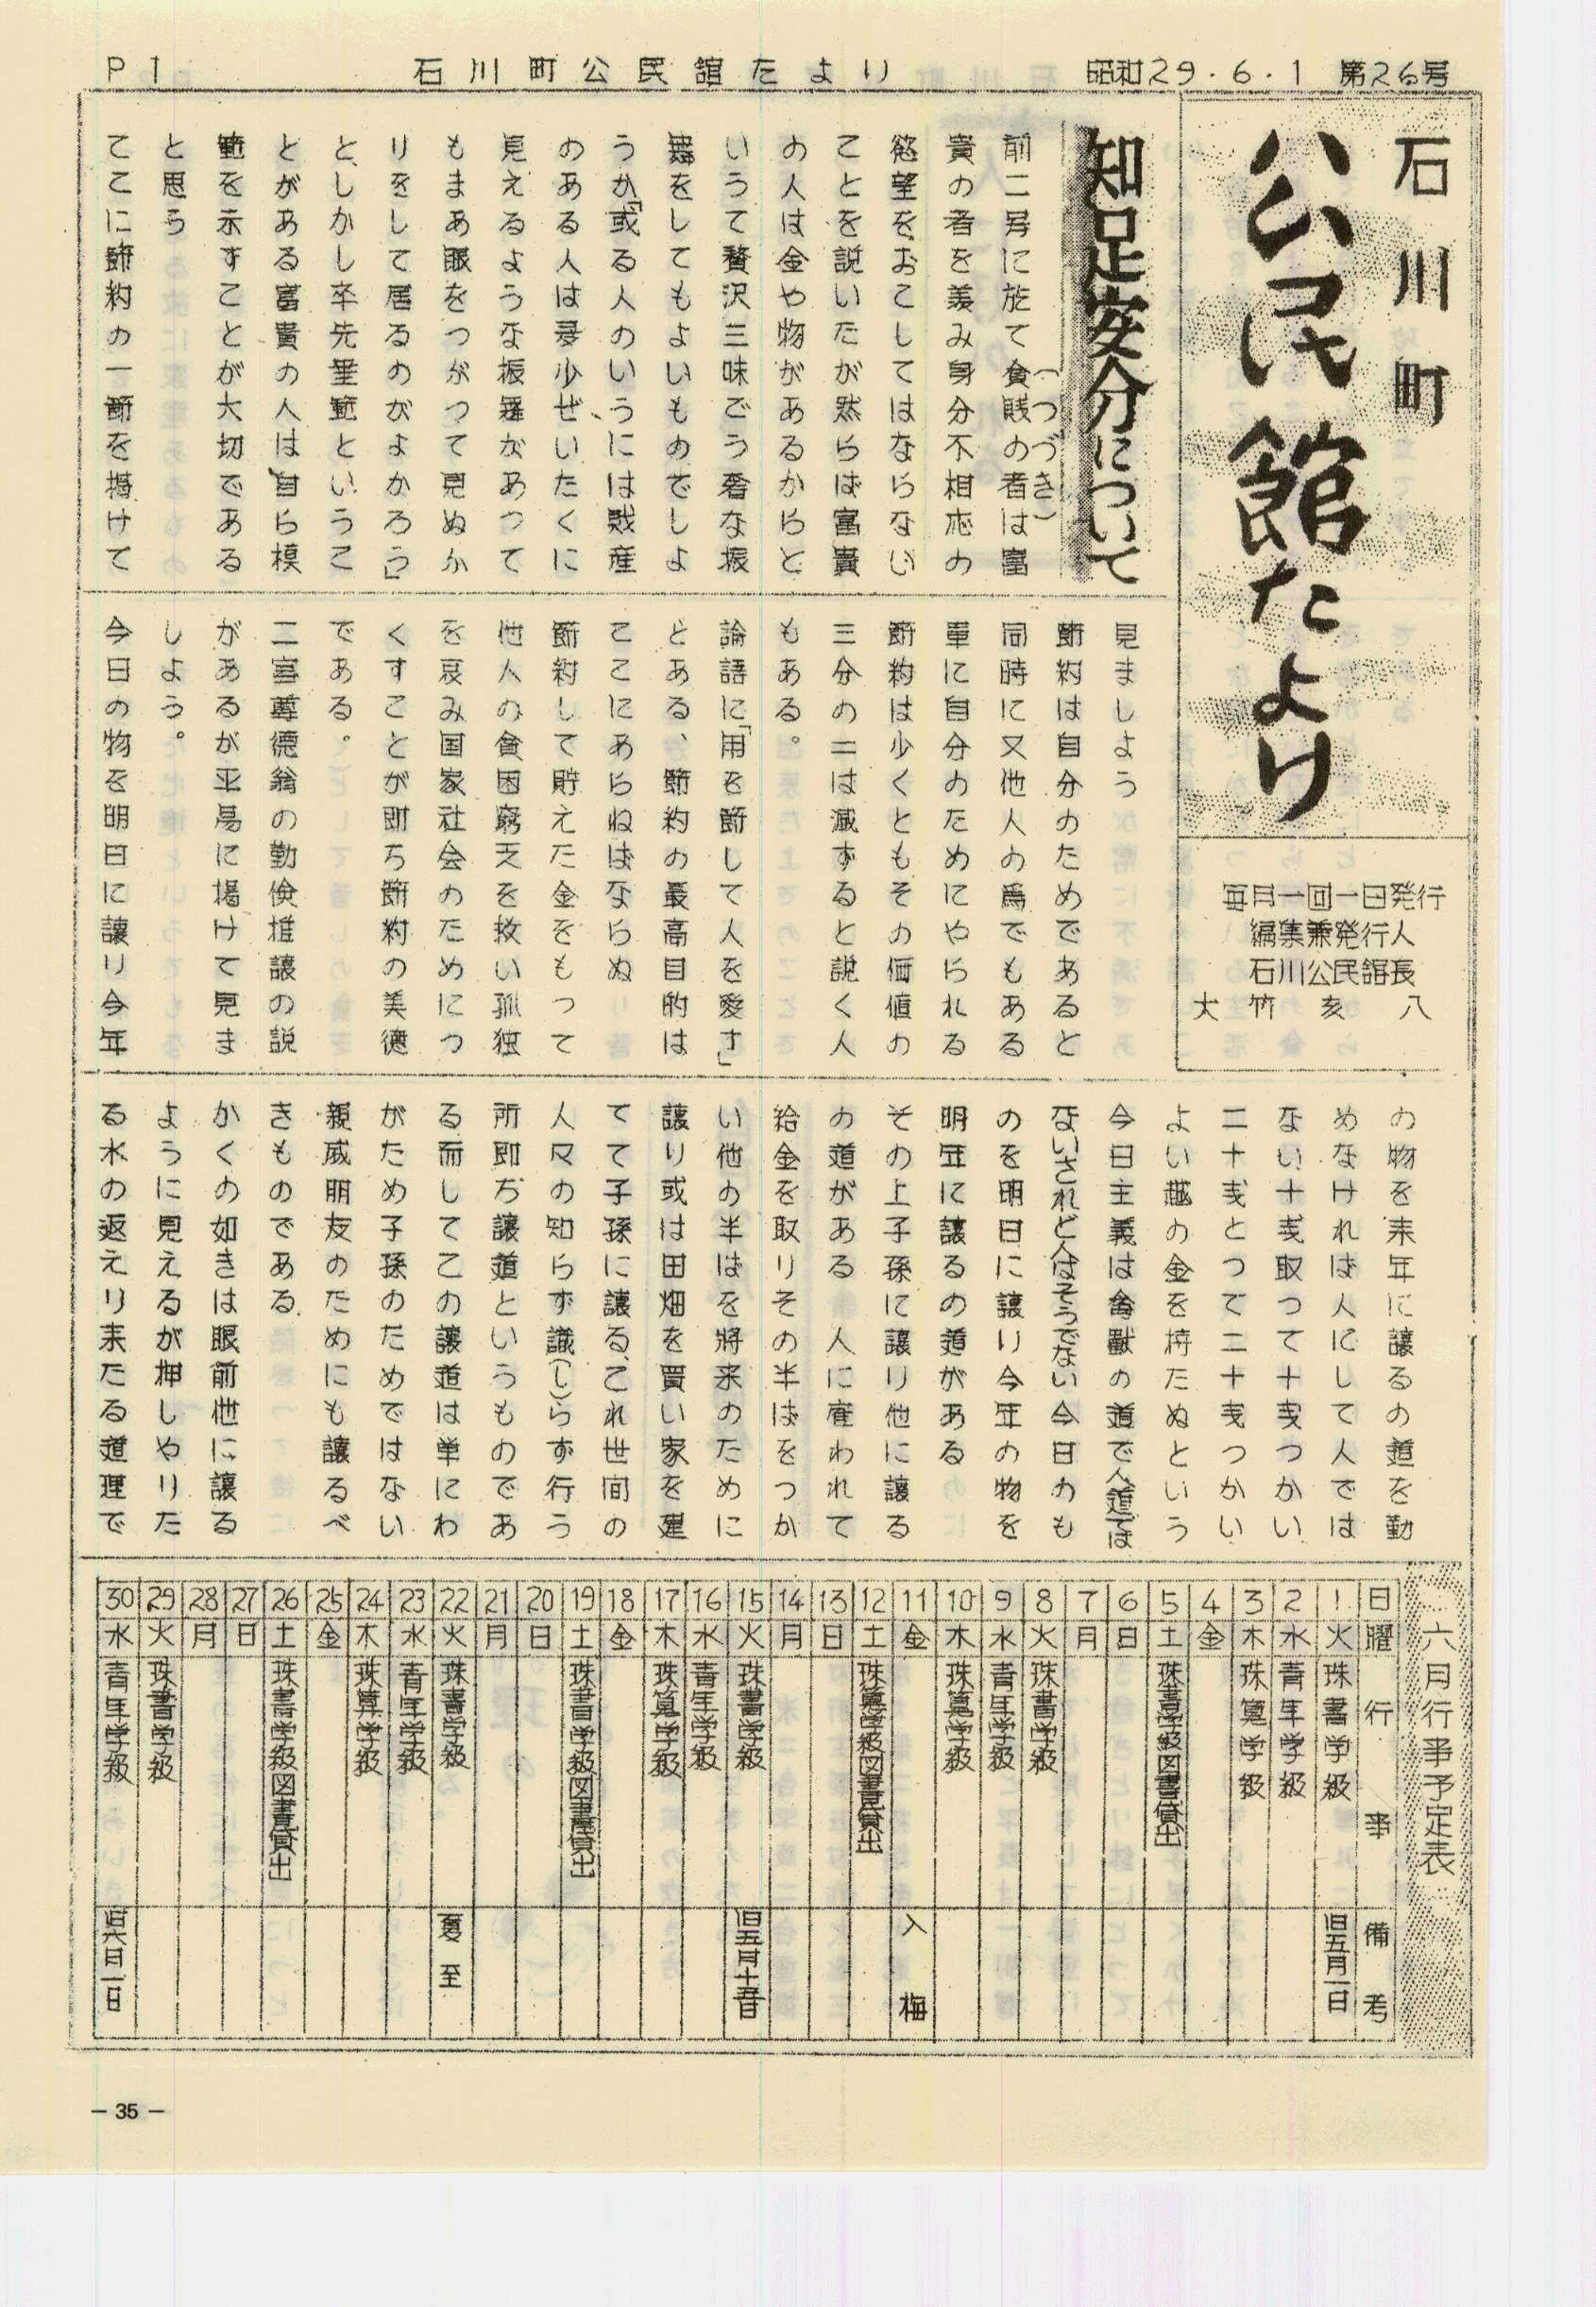 P1
石川町公民舘たより
昭和29.6.1 第26号
石川町
公民館たより
毎月一回一日発行
編集兼発行人
石川公民舘長
大竹亥八
知足安分について
(つづき)
前二号に於て貧賎の者は富
貴の者を羨み身分不相応の
慾望をおこしてはならない
ことを説いたが然らば富貴
の人は金や物があるからと
いうて贅沢三味でう奢な振
舞をしてもよいものでしよ
うか「或る人のいうには戝産
のある人は多少ぜいたくに
見えるような振舞があつて
もまあ眼をつがつて見ぬか
りをして居るのがよかろう」
と、しかし卒先垂範というこ
とがある富貴の人は、自ら模
範を示すことが大切である
と思う
てこに節約の一節を掲けて
見ましよう
節約は自分のためであると
同時に又他人の爲でもある
單に自分のためにやられる
節約は少くともその価値の
三分の二は減ずると説く人
もある。
論語に「用を節して人を愛す」
とある、節約の最高目的は
ここにあらねばならぬ
節約して貯えた金をもって
他人の貧困窮乏を救い孤独
を哀み国家社会のためにつ
くすことが即ち節約の美徳
である。
二宮尊德翁の勤倹推譲の説
があるが平易に掲けて見ま
しよう。
今日の物を明日に譲り今年
の物を来年に譲るの道を勤
めなければ人にして人では
ない十戋取つて十戋つかい
二十戋とつて二十戋つかい
よい越の金を持たぬという
今日主義は禽獸の道で人道では
ないされど人はそうでない今日のも
のを明日に譲り今年の物を
明年に譲るの道がある
その上子孫に譲り他に譲る
の道がある 人に雇われて
給金を取りその半ばをつか
い他の半ばを將来のために
譲り或は田畑を買い家を建
てて子孫に譲る、これ世间の
人又の知らず識(し)らず行う
所即ち譲道というものであ
る而してこの譲道は単にわ
がため子孫のためではない
親戚朋友のためにも譲るべ
きものである
かくの如きは眼前他に譲る
ように見えるが押しやりた
る水の返えり来たる道理で
六月行事予定表
日 曜 行事 備考
1 火 珠書学級 旧五月一日
2 水 青年学級
3 木 珠算学級
4 金
5 土 珠書学級図書貸出
6 日
7 月
8 火 珠書学級
9 水 青年学級
10 木 珠算学級
11 金 入梅
12 土 珠算学級図書貸出
13 日
14 月
15 火 珠書学級 旧五月十五日
16 水 青年学級
17 木 珠算学級
18 金
19 土 珠書学級図書貸出
20 日
21 月
22 火 珠書学級 夏至
23 水 青年学級
24 木 珠算学級
25 金
26 土 珠書学級図書貸出
27 日
28 月
29 火 珠書学級
30 水 青年学級 旧六月一日
— 35 —